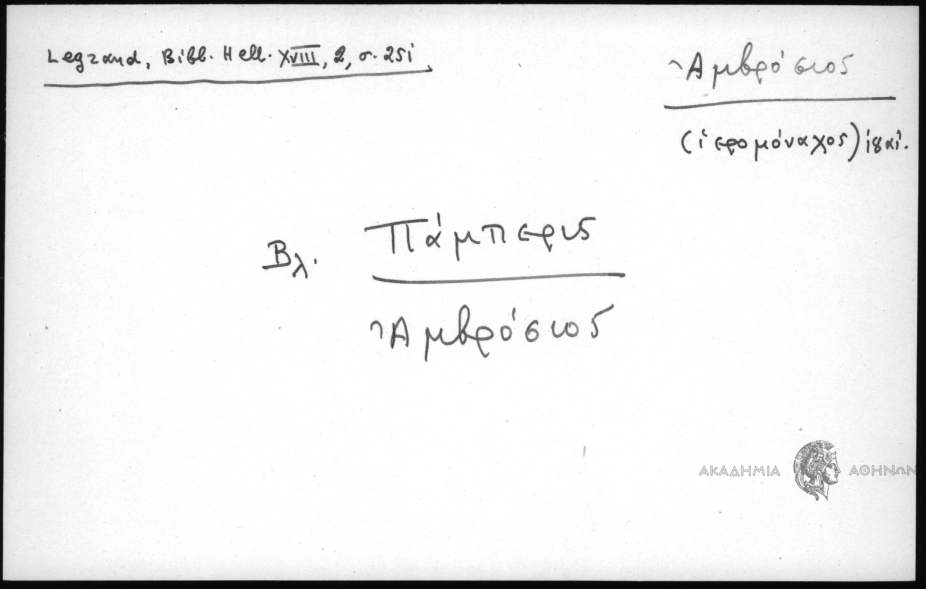 Legrand, Bibl. Hell. XVIII, 2, σ. 251
Ἀμβρόσιος
(ἱερομόναχος) ιηʹ αἰ.
Βλ. Πάμπερις
Ἀμβρόσιος
ΑΚΑΔΗΜΙΑ ΑΘΗΝΩΝ